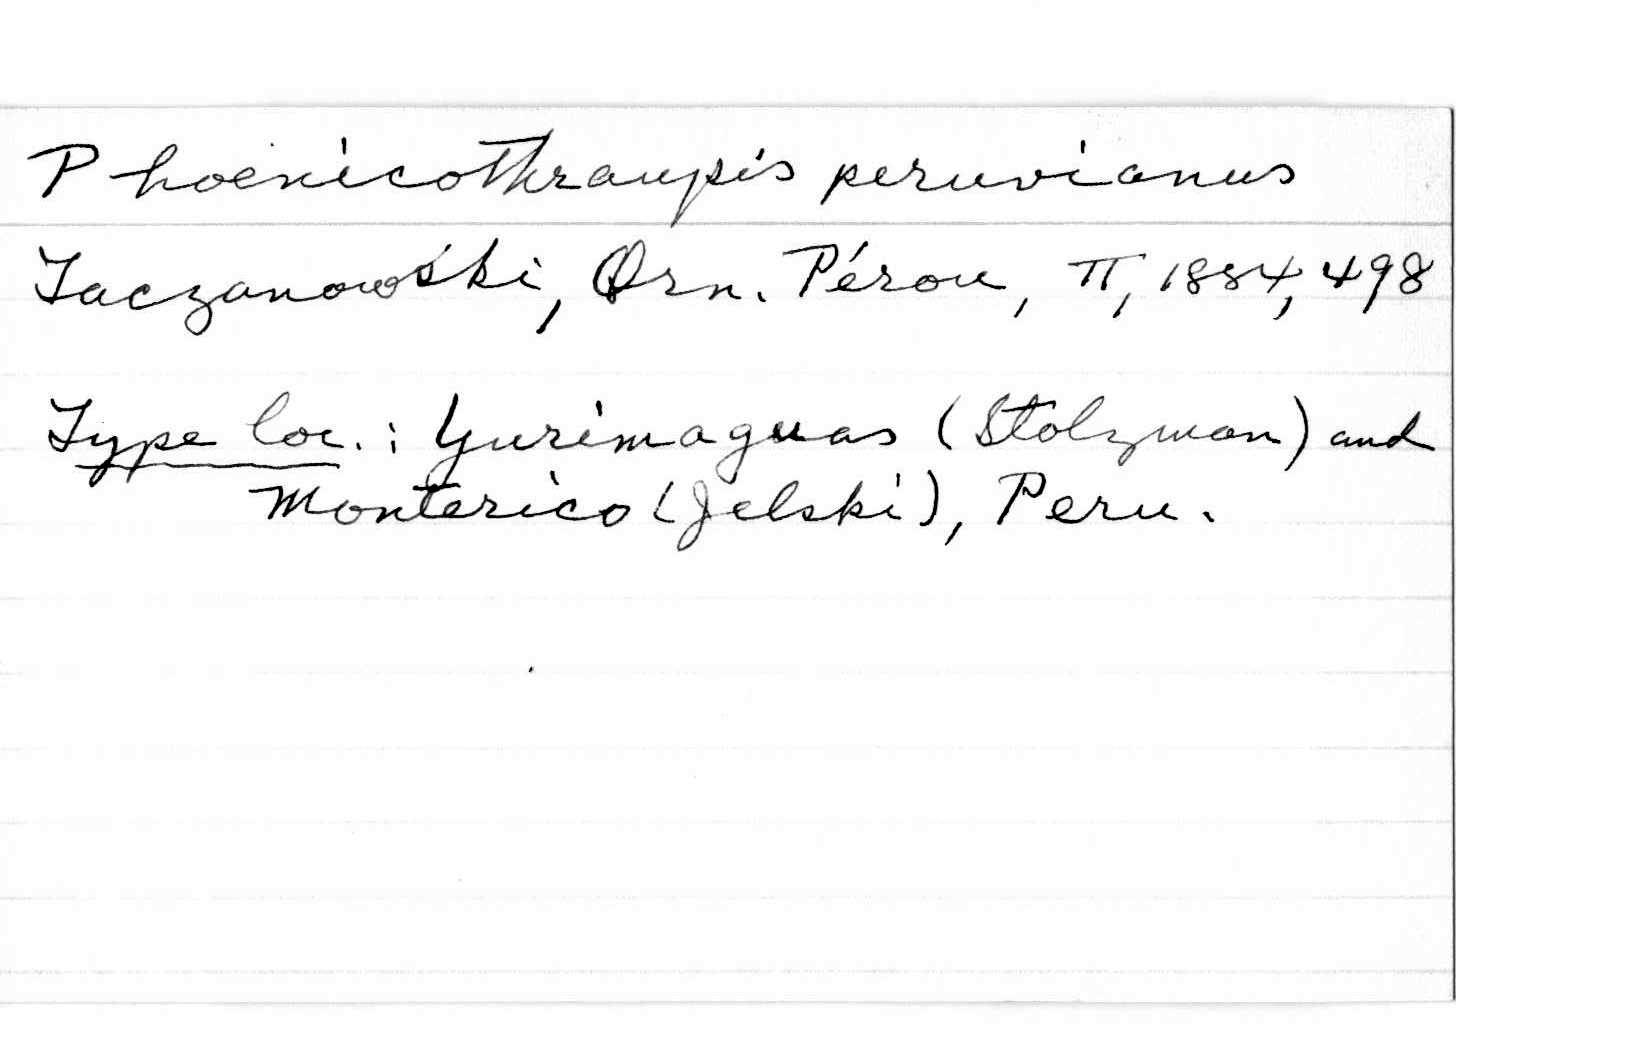 Phoenicothraupis peruvianus
Taczanowski, Orn. Pérou, II, 1884, 498
Type loc.: Yurimaguas (Stolzman) and
Monterico (Jelski), Peru.